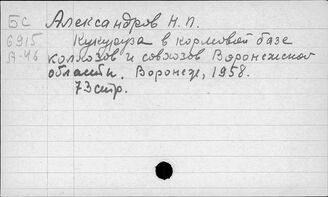 БС Александров Н. П.
6915 Кукуруза в кормовой базе
А-46 колхозов и совхозов Воронежской
области. Воронеж, 1958.
73 стр.